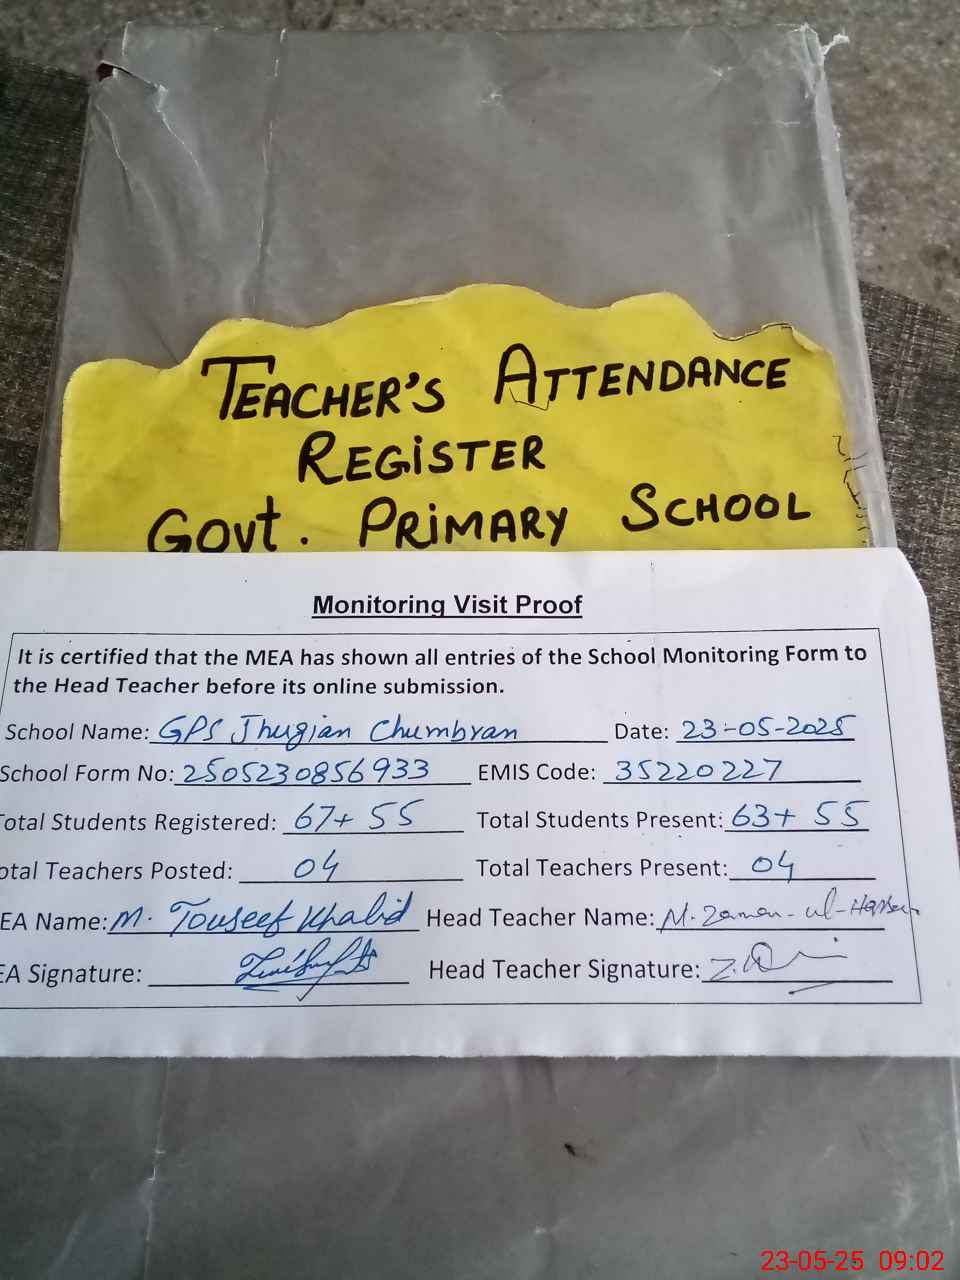 TEACHER'S ATTENDANCE
REGISTER
Govt. PRIMARY SCHOOL
Monitoring Visit Proof
It is certified that the MEA has shown all entries of the School Monitoring Form to
the Head Teacher before its online submission.
School Name: GPS Jhugian Chumbran Date: 23-05-2025
School Form No: 2505230856933 EMIS Code: 35220227
Total Students Registered: 67+ 55 Total Students Present: 63+ 55
otal Teachers Posted: 04 Total Teachers Present: 04
EA Name: M. Touseef Khalid Head Teacher Name: M. Zaman-ul-Hassan
EA Signature: Head Teacher Signature:
23-05-25 09:02